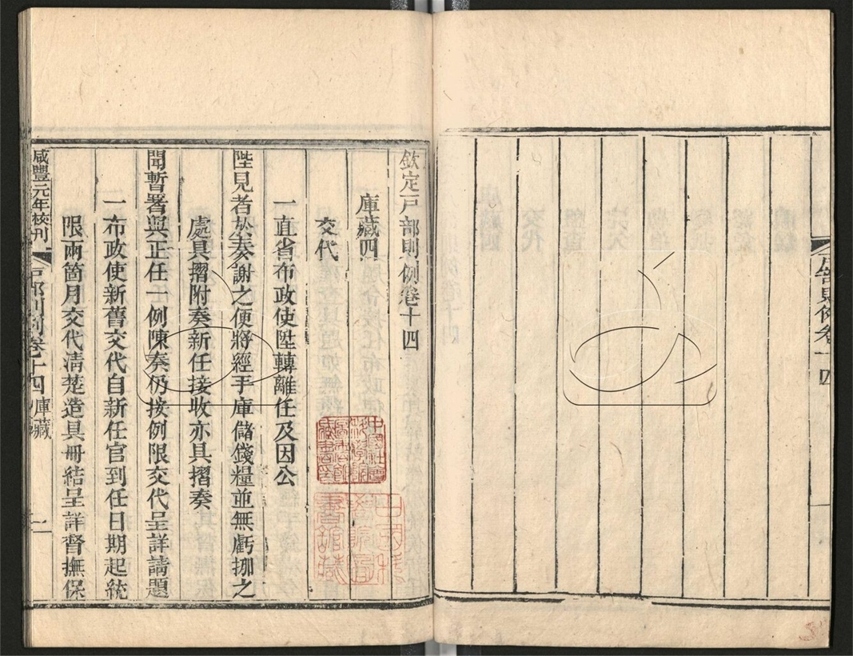 欽定戶部則例卷十四
庫藏四
交代
一直省布政使陞轉離任及因公
陛見者於奏謝之便將經手庫儲錢糧並無虧挪之
處具摺附奏新任接收亦具摺奏
聞暫署與正任一例陳奏仍按例限交代呈詳請題
一布政使新舊交代自新任官到任日期起統
限兩箇月交代清楚造具冊結呈詳督撫保
咸豐元年校刊
戶部則例卷十四 庫藏
一
戶部則例卷十四